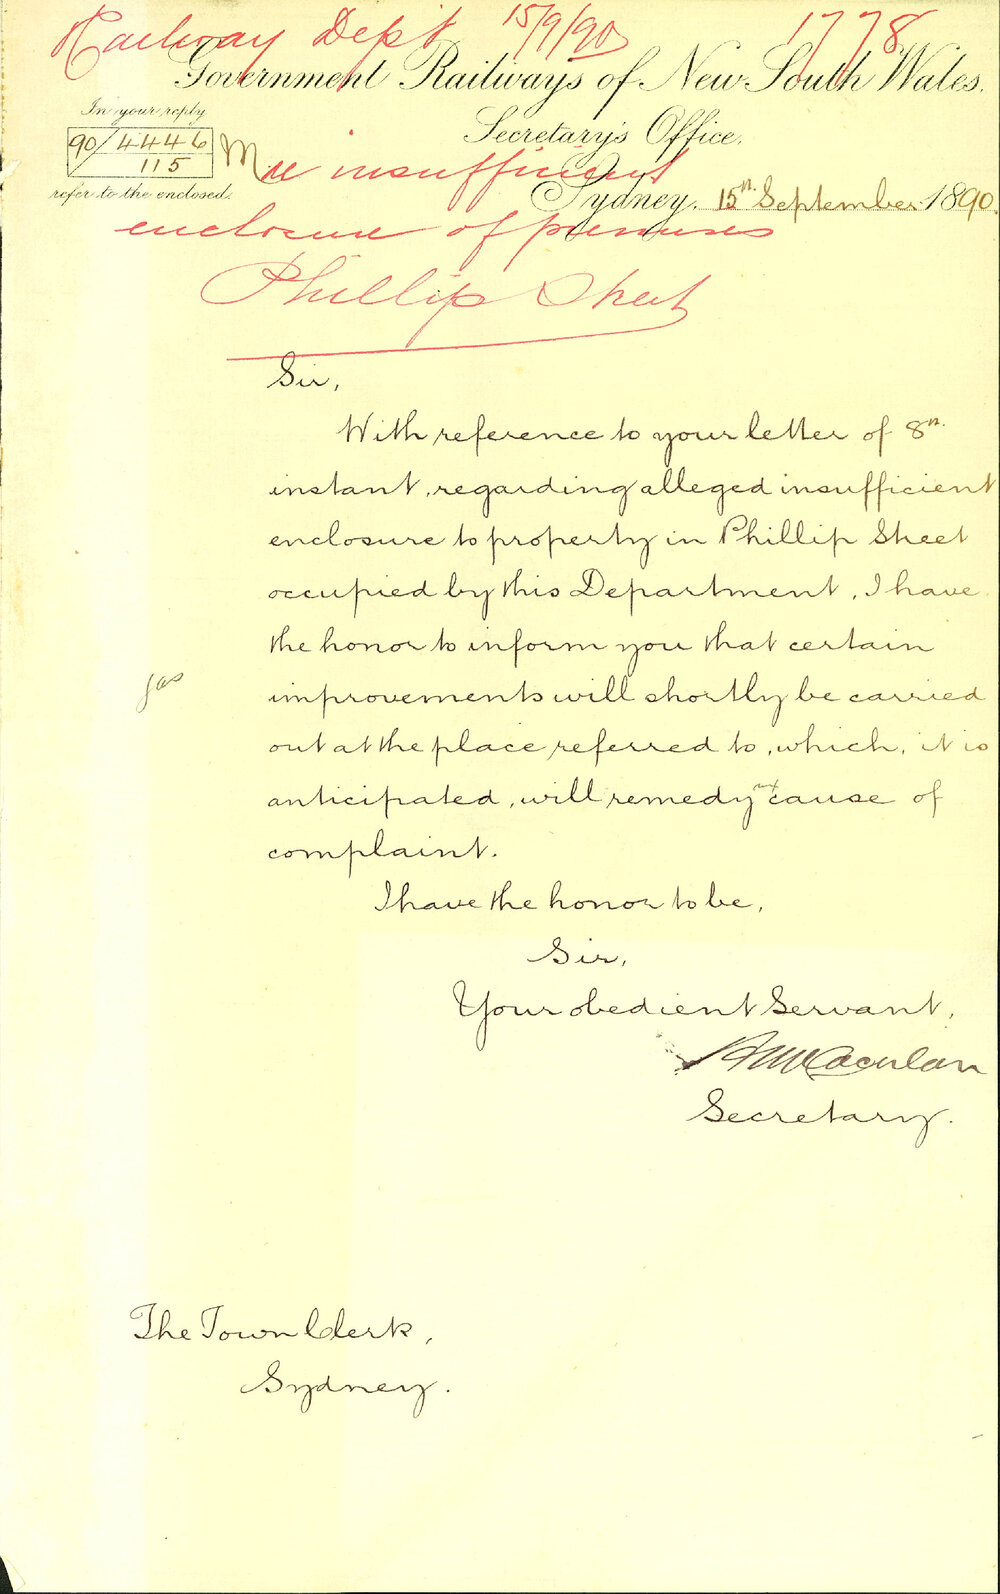 Railway Dept 15/9/90 1778
Government Railways of New South Wales.
Secretary's Office,
In your reply
90/4446
115
refer to the enclosed.
Sydney, 15th September 1890.
M re insufficient
enclosure of premises
Phillip Street
Sir,
With reference to your letter of 8th
instant, regarding alleged insufficient
enclosure to property in Phillip Street
occupied by this Department, I have
the honor to inform you that certain
improvements will shortly be carried
out at the place referred to, which, it is
anticipated, will remedy cause of
complaint.
I have the honor to be,
Sir,
Your obedient Servant,
Secretary.
The Town Clerk,
Sydney.